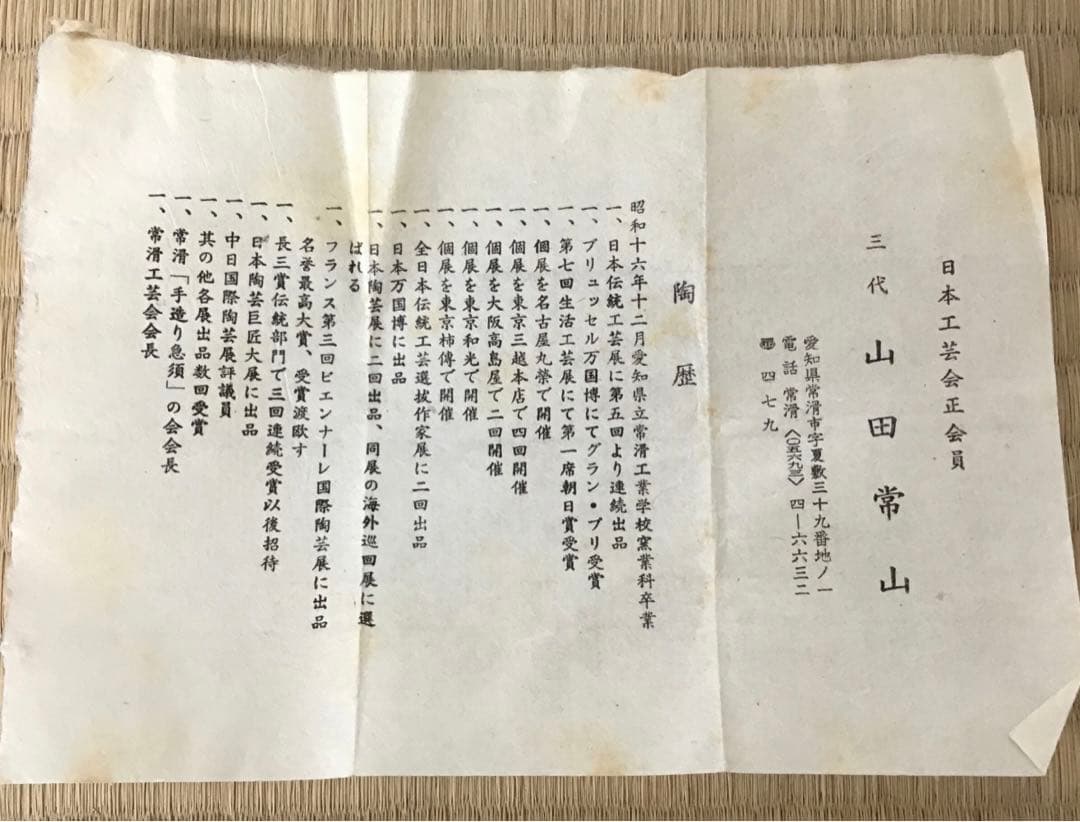 日本工芸会正会員
三代 山田常山
愛知県常滑市字夏敷三十九番地ノ一
電話 常滑〈〇五六九三〉四―六六三二
四七九
陶歴
昭和十六年十二月愛知県立常滑工業学校窯業科卒業
一、日本伝統工芸展に第五回より連続出品
一、ブリュッセル万国博にてグラン・プリ受賞
一、第七回生活工芸展にて第一席朝日賞受賞
一、個展を名古屋丸栄で開催
一、個展を東京三越本店で四回開催
一、個展を大阪高島屋で二回開催
一、個展を東京和光で開催
一、個展を東京柿傳で開催
一、全日本伝統工芸選抜作家展に二回出品
一、日本万国博に出品
一、日本陶芸展に二回出品、同展の海外巡回展に選
ばれる
一、フランス第三回ビエンナーレ国際陶芸展に出品
名誉最高大賞、受賞渡欧す
一、長三賞伝統部門で三回連続受賞以後招待
一、日本陶芸巨匠大展に出品
一、中日国際陶芸展評議員
一、其の他各展出品数回受賞
一、常滑「手造り急須」の会会長
一、常滑工芸会会長